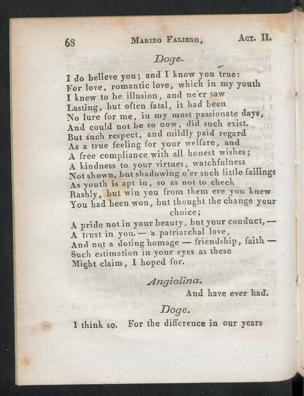 68 Marino Faliero, Act. II.
Doge.
I do believe you; and I know you true:
For love, romantic love, which in my youth
I knew to be illusion, and ne'er saw
Lasting, but often fatal, it had been
No lure for me, in my most passionate days,
And could not be so now, did such exist.
But such respect, and mildly paid regard
As a true feeling for your welfare, and
A free compliance with all honest wishes;
A kindness to your virtues, watchfulness
Not shown, but shadowing o'er such little failings
As youth is apt in, so as not to check
Rashly, but win you from them ere you knew
You had been won, but thought the change your
choice;
A pride not in your beauty, but your conduct, —
A trust in you. — a patriarchal love,
And not a doting homage — friendship, faith —
Such estimation in your eyes as these
Might claim, I hoped for.
Angiolina.
And have ever had.
Doge.
I think so. For the difference in our years